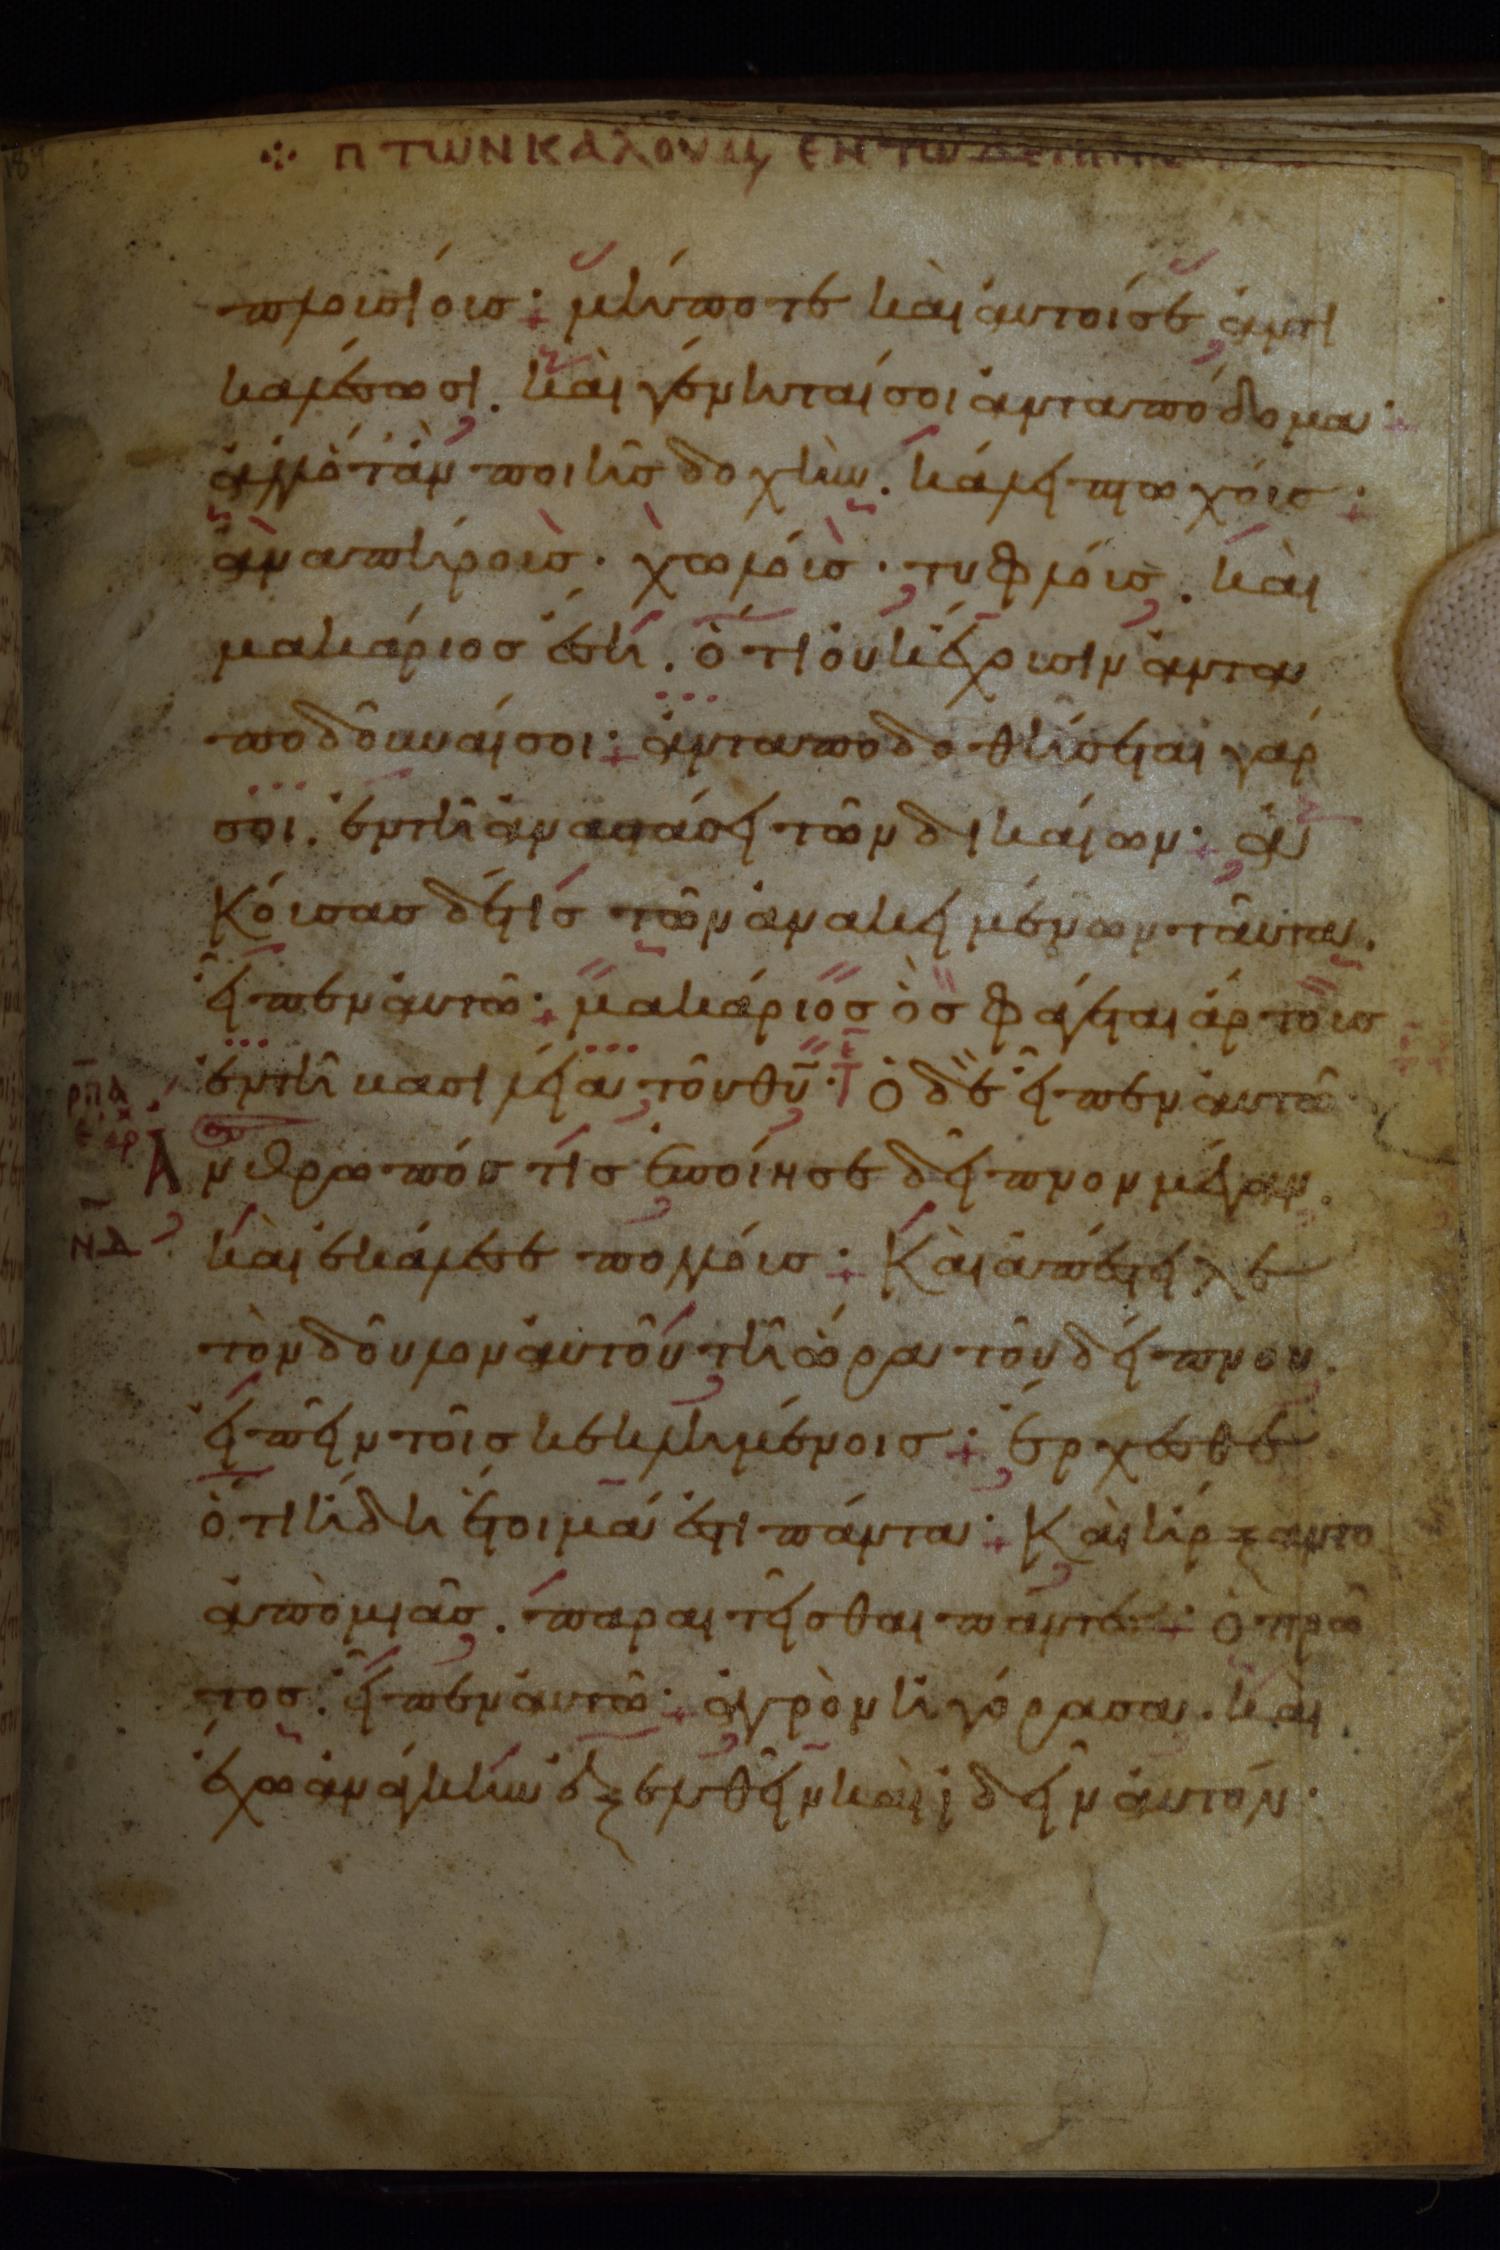 ⁘ π τῶν καλουμ ἐν τῷ δείπν
πλουσίους: μήποτε καὶ αὐτοί σε ἀντι
καλέσωσι. καὶ γένηταί σοι ἀνταπόδομα:
ἀλλ' ὅταν ποιῇς δοχὴν. κάλει πτωχούς:
ἀναπήρους. χωλούς. τυφλούς. καὶ
μακάριος ἔσῃ. ὅτι οὐκ ἔχουσιν ἀντα
ποδοῦναί σοι: ἀνταποδοθήσεται γάρ
σοι. ἐν τῇ ἀναστάσει τῶν δικαίων: ἀ
κούσας δέ τις τῶν ἀνακειμένων ταῦτα.
εἶπεν αὐτῷ: μακάριος ὃς φάγεται ἄρτον
ἐν τῇ βασιλείᾳ τοῦ θυ: ὁ δὲ εἶπεν αὐτῷ
ρπα
Ἄνθρωπός τις ἐποίησε δεῖπνον μέγαν.
νδ
καὶ ἐκάλεσε πολλούς: Καὶ ἀπέστειλε
τὸν δοῦλον αὐτοῦ τῇ ὥρα τοῦ δείπνου.
εἰπεῖν τοῖς κεκλημένοις: ἔρχεσθε
ὅτι ἤδη ἕτοιμά ἐστι πάντα: Καὶ ἤρξαντο
ἀπὸ μιᾶς. παραιτεῖσθαι πάντες: ὁ πρῶ
τος. εἶπεν αὐτῷ: ἀγρὸν ἠγόρασα. καὶ
ἔχω ἀνάγκην ἐξελθεῖν καὶ ἰδεῖν αὐτόν.